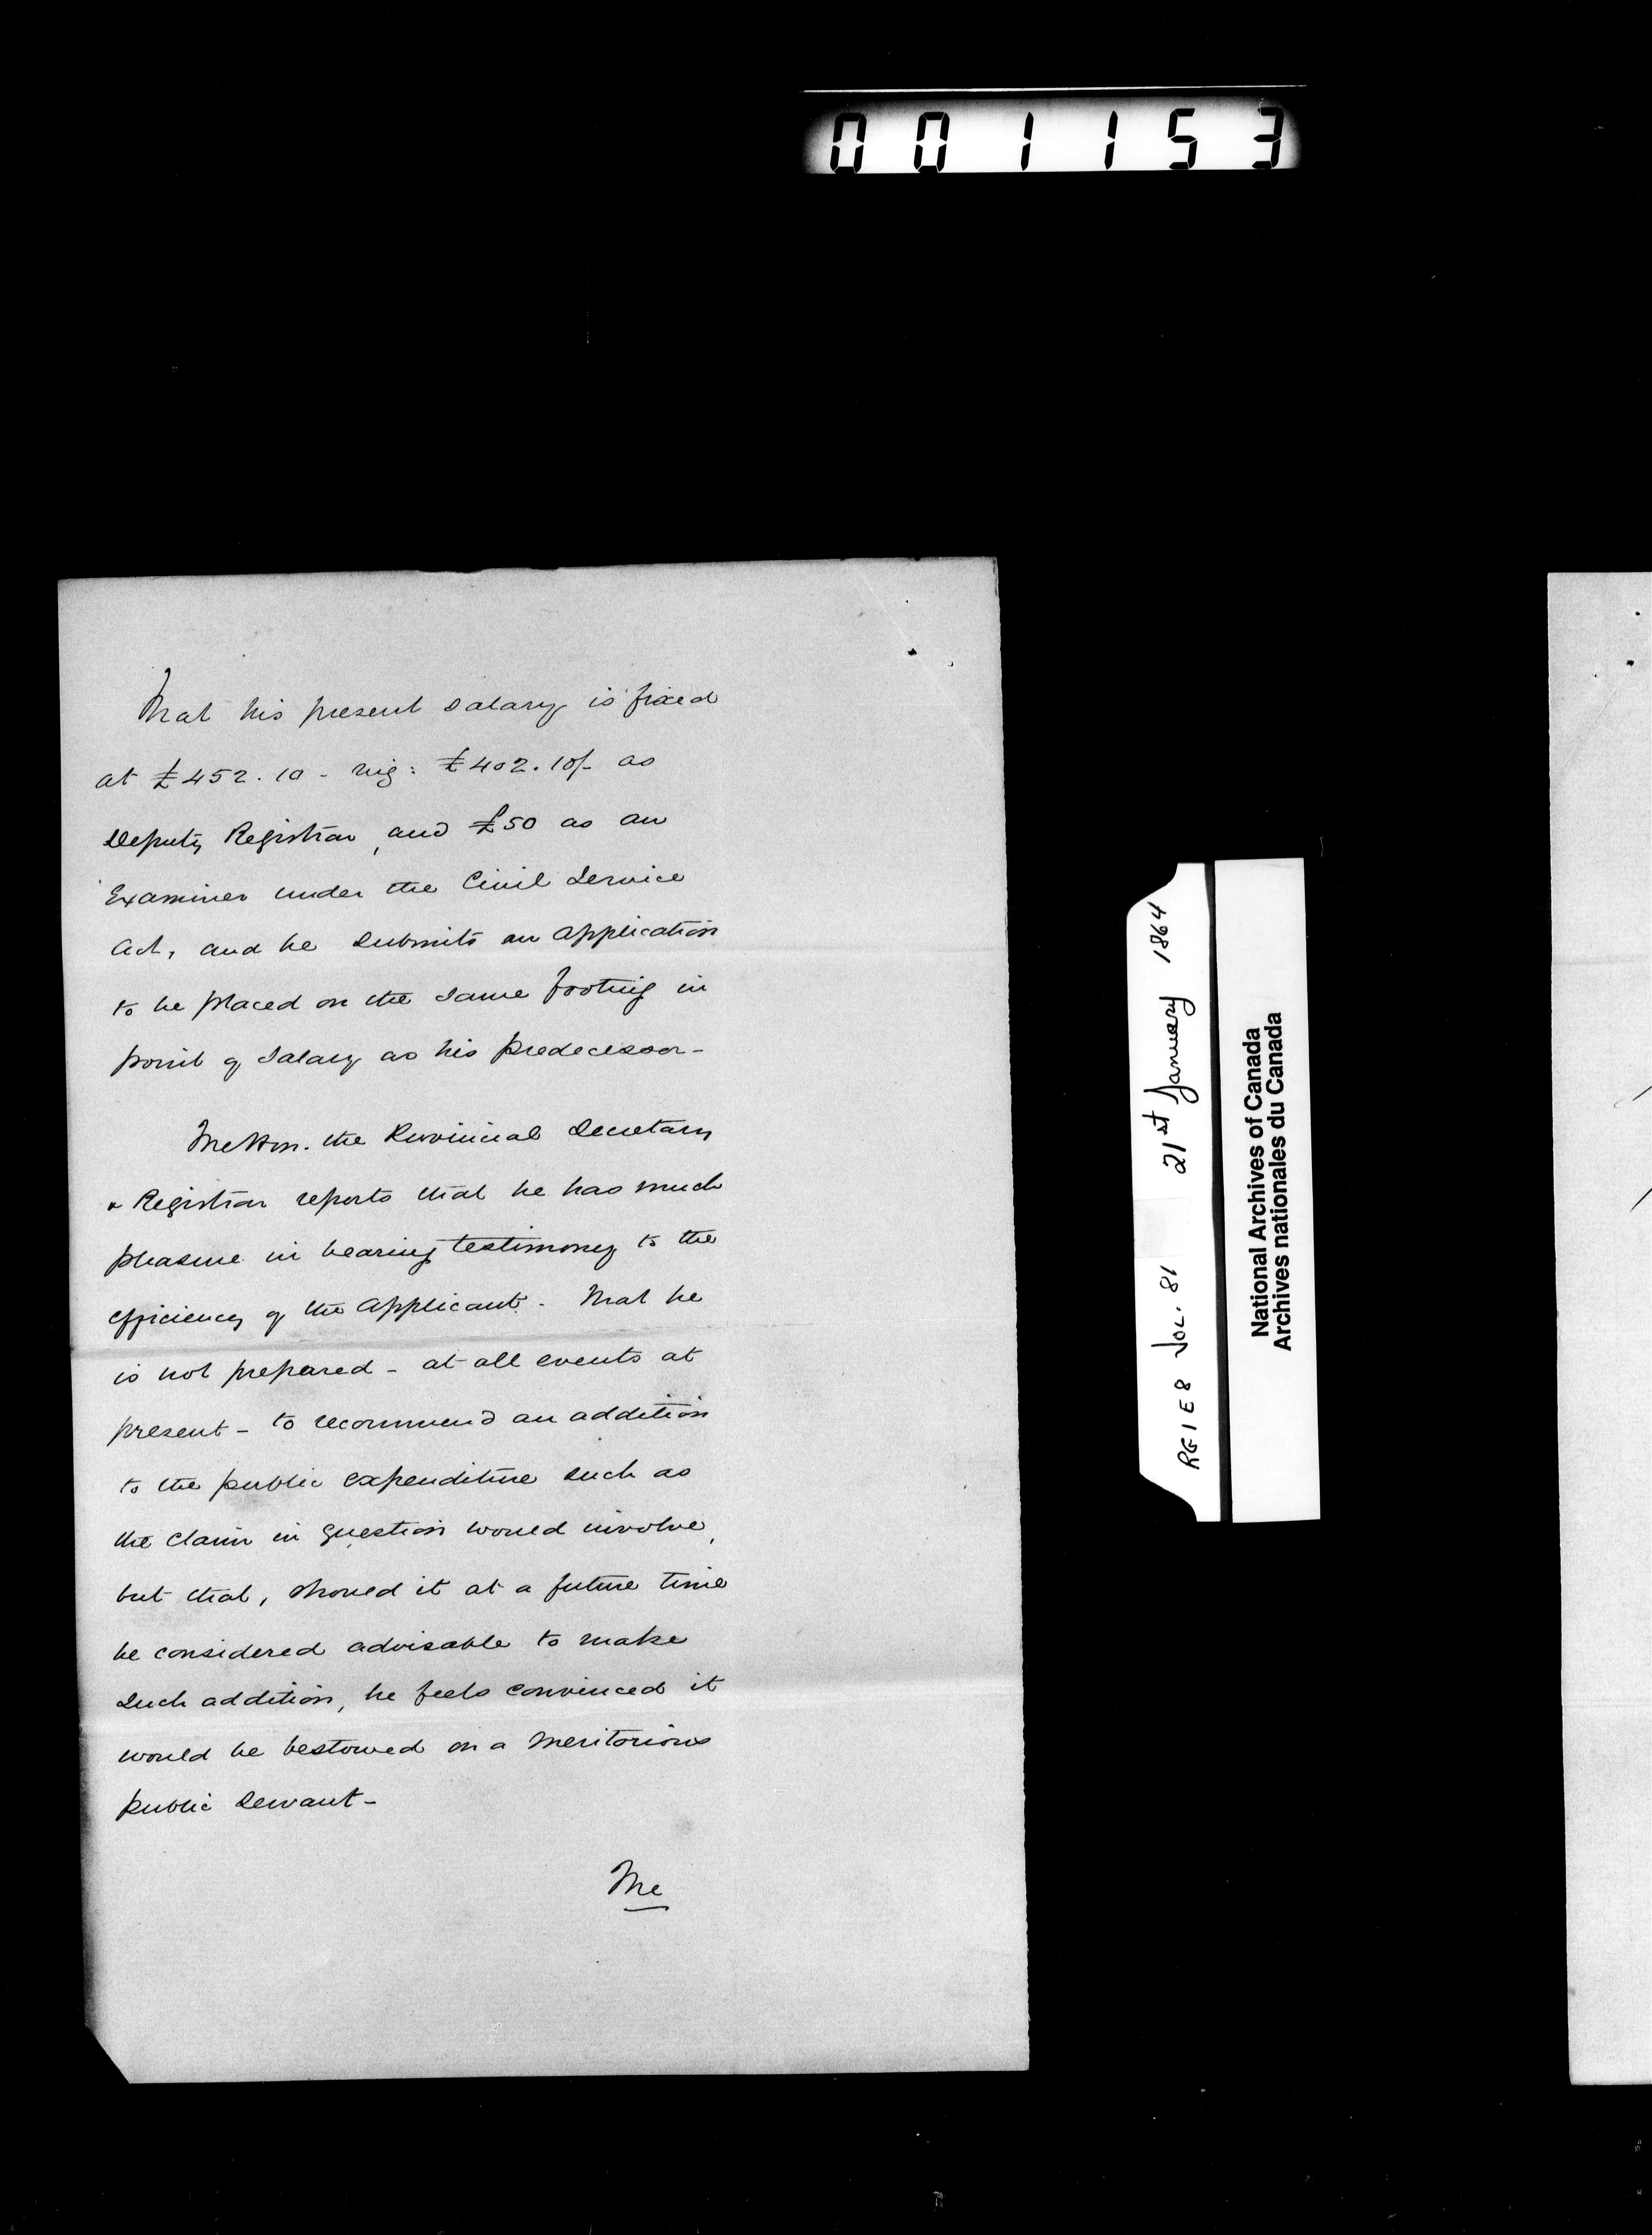 001153
That his present salary is fixed
at £452.10 - viz: £402.10/- as
Deputy Registrar, and £50 as an
Examiner under the Civil Service
Act, and he submits an application
to be placed on the same footing in
point of salary as his predecessor -
The Hon. the Provincial Secretary
& Registrar reports that he has much
pleasure in bearing testimony to the
efficiency of the applicant. That he
is not prepared - at all events at
present - to recommend an addition
to the public expenditure such as
the claim in question would involve,
but that, should it at a future time
be considered advisable to make
such addition, he feels convinced it
would be bestowed on a meritorious
public servant -
The
RG 1 E 8 VOL. 81 21st January 1864
National Archives of Canada
Archives nationales du Canada